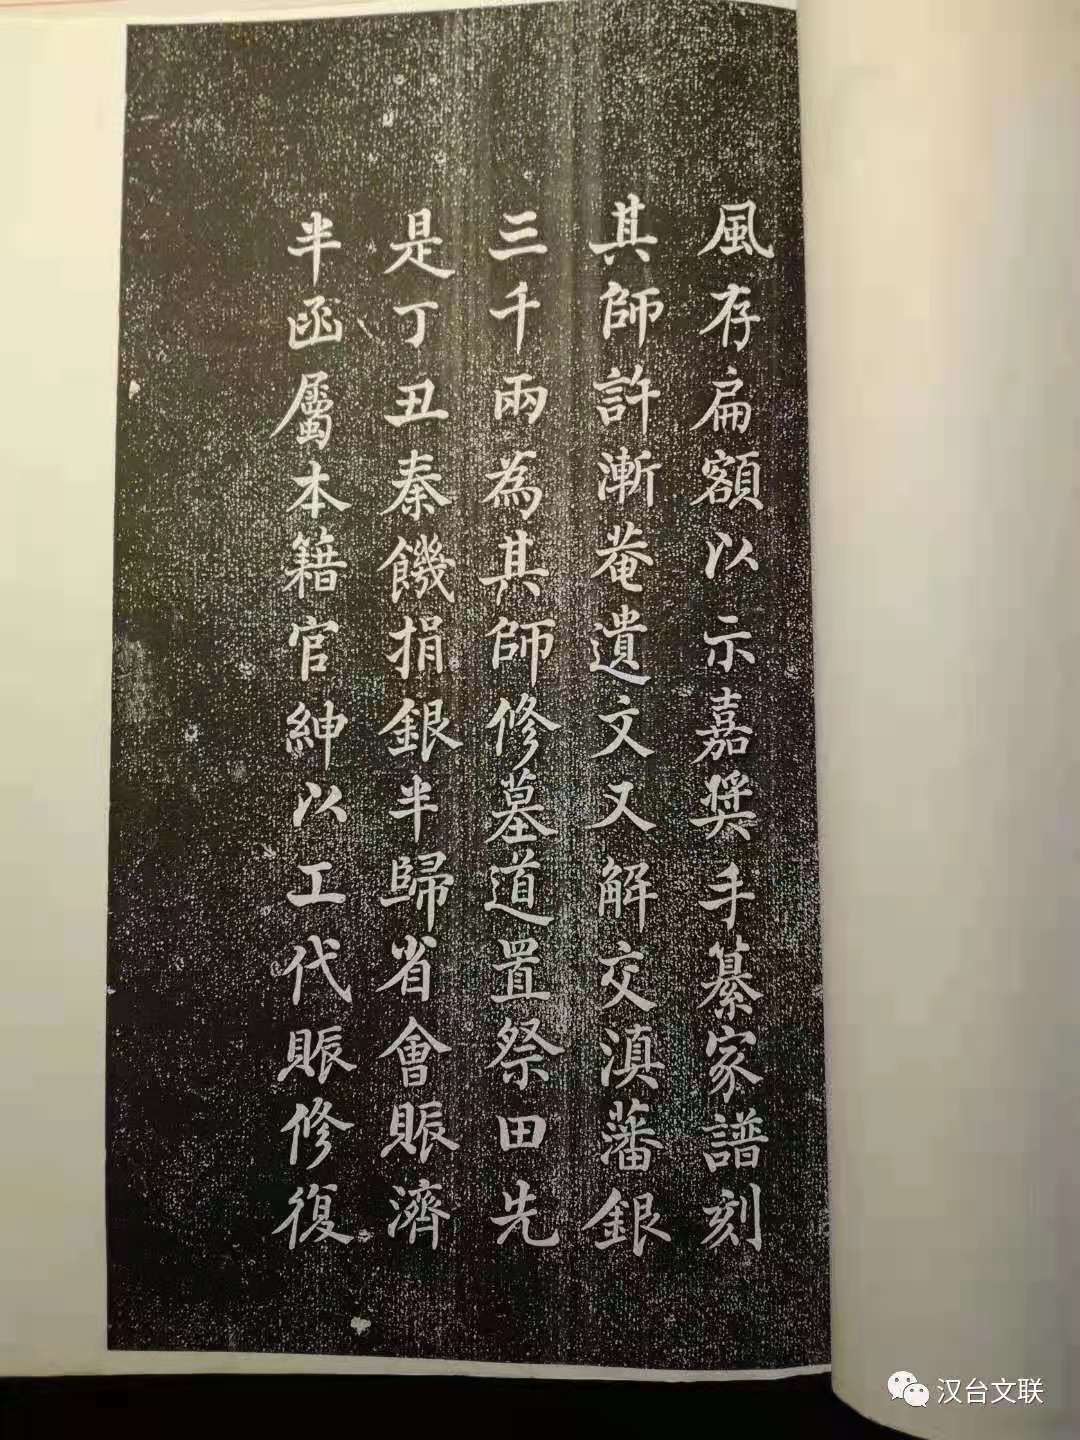 風存扁額以示嘉奬手纂家譜刻
其師許漸菴遺文又解交滇藩銀
三千兩為其師修墓道置祭田先
是丁丑秦饑捐銀半歸省會賑濟
半函屬本籍官紳以工代賑修復
汉台文联